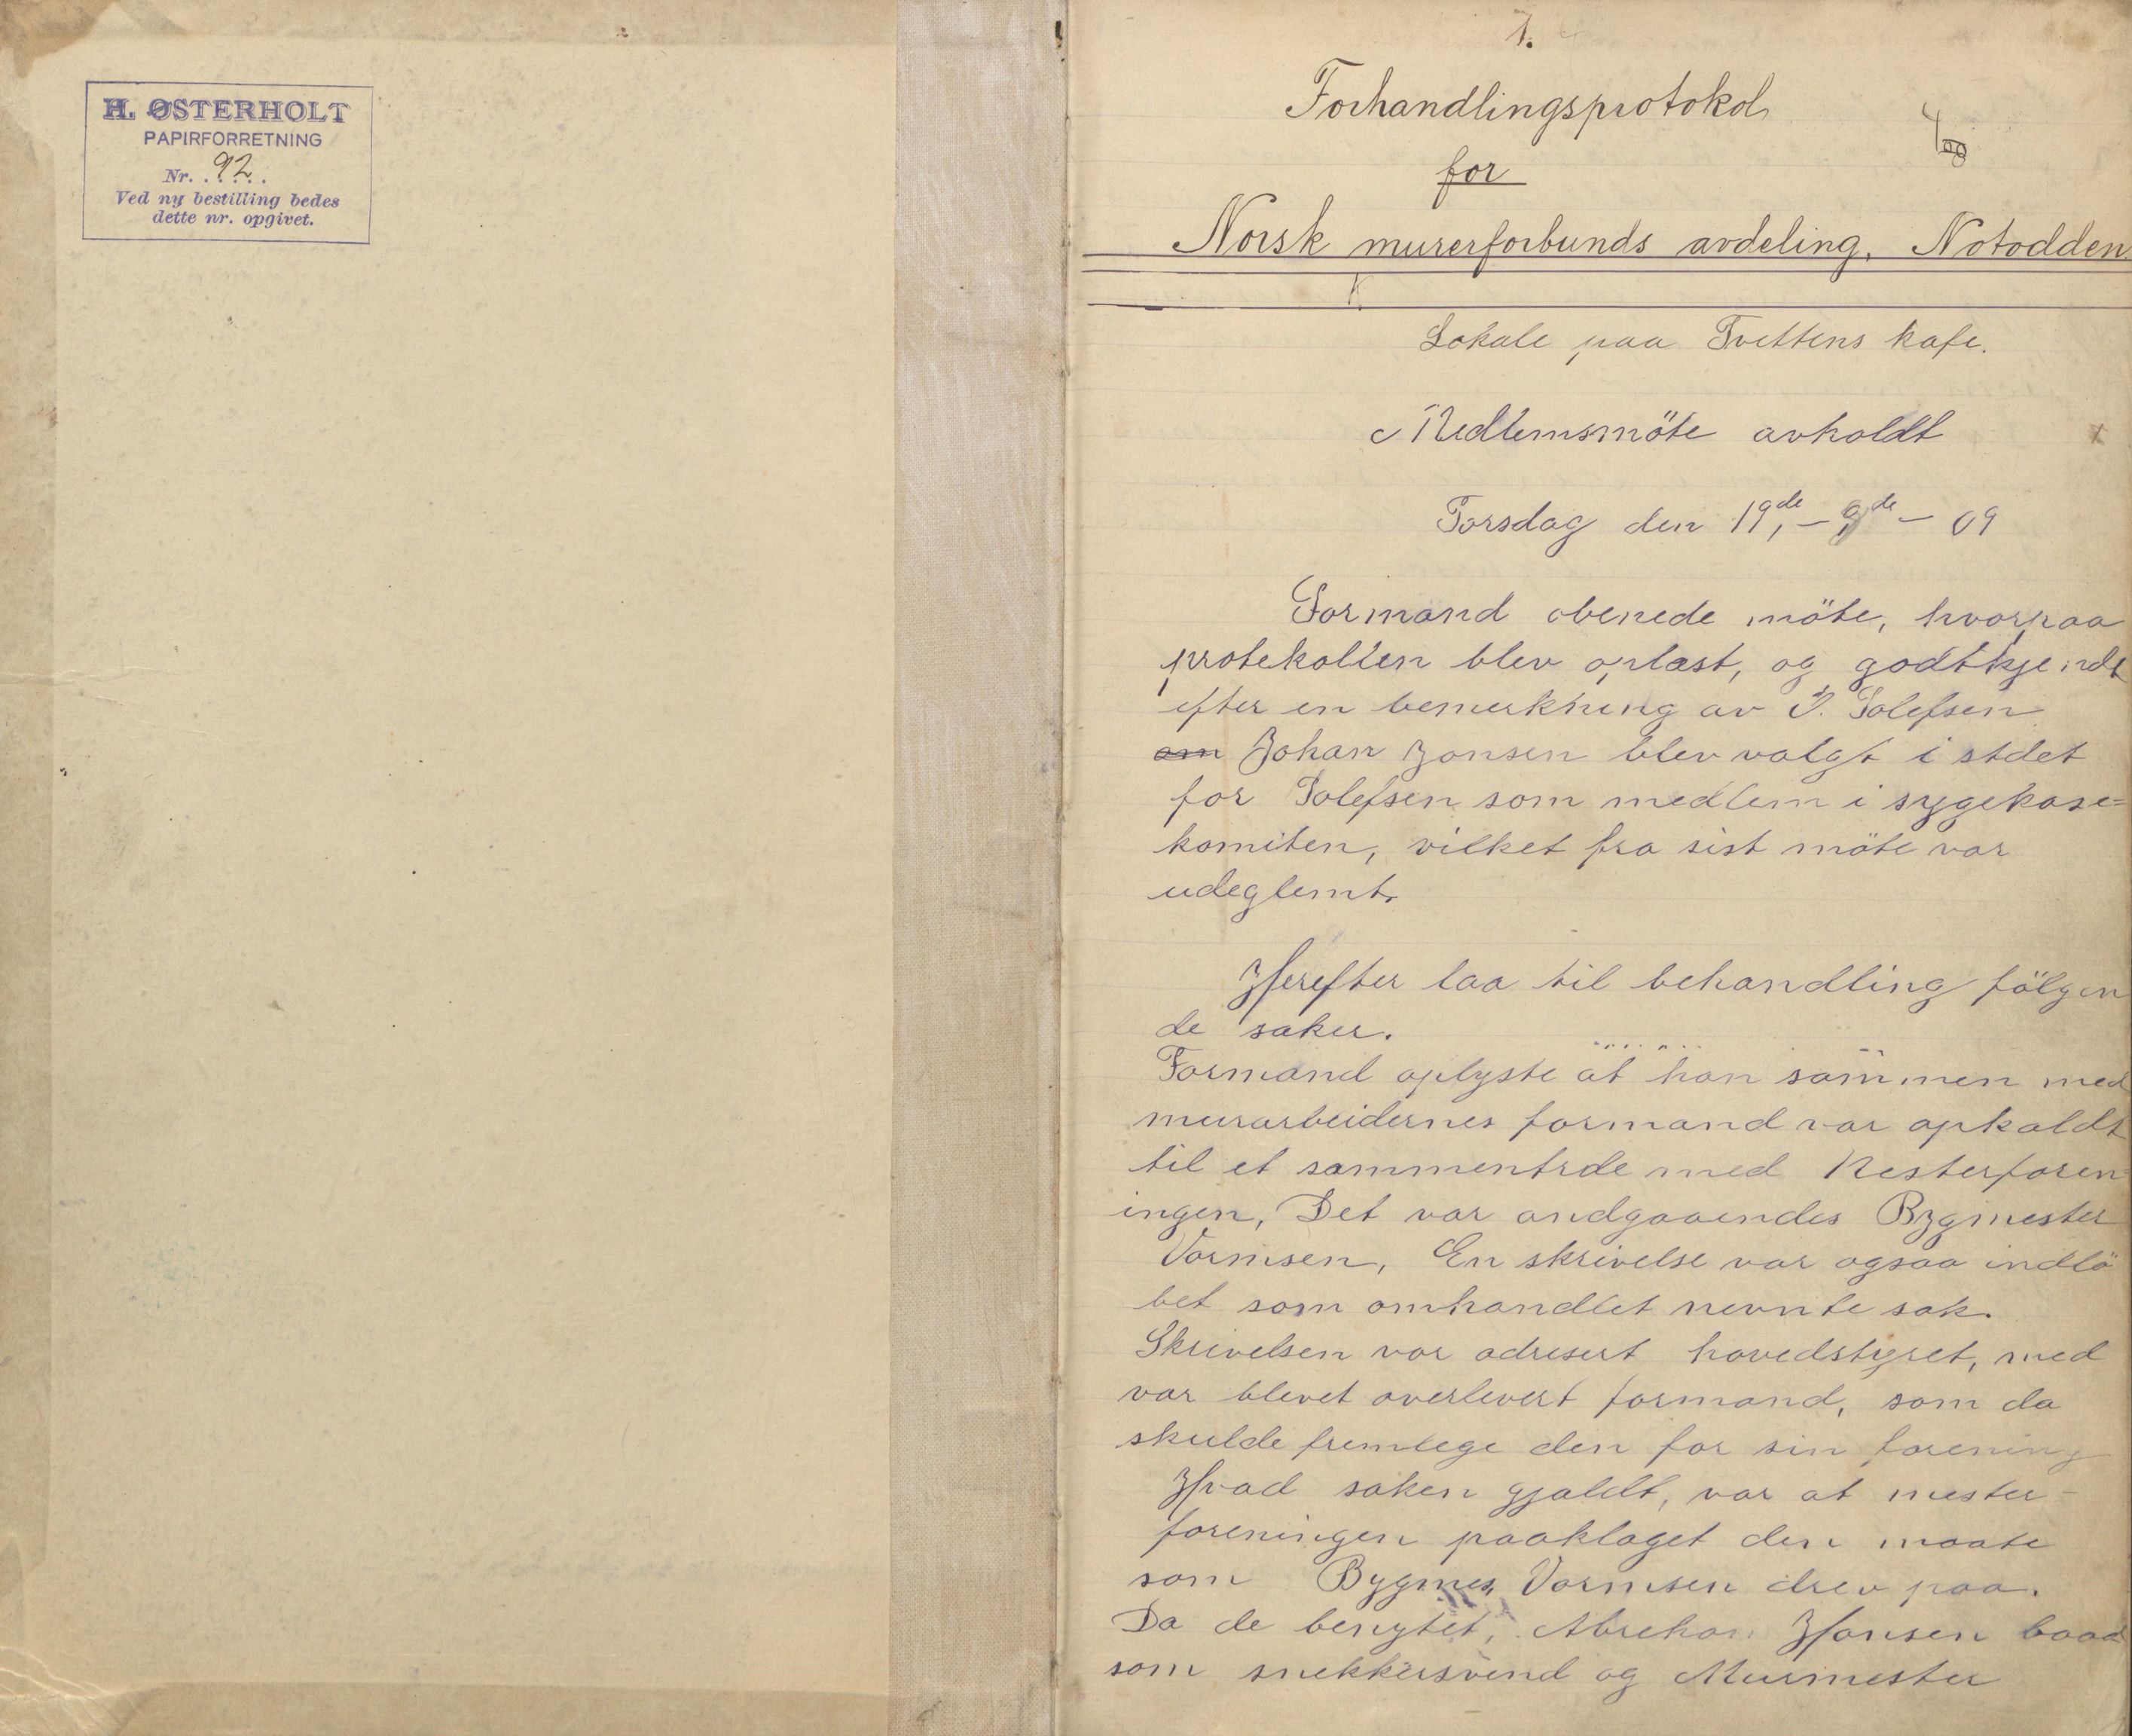 H. ØSTERHOLT
PAPIRFORRETNING
Nr. 92
Ved ny bestilling bedes
dette nr. opgivet.
1.
Forhandlingsprotokol
for
Norsk murerforbunds avdeling, Notodden
Lokale paa Tvettens kafe.
Medlemsmöte avholdt
Torsdag den 19de, - de - 09
Formand obenede möte, hvorpaa
protekollen blev oplæst, og godtkjendt
efter en bemerkning av T. Tolefsen
om Johan Jonsen blev valgt i stdet
for Tolefsen som medlem i sygekase=
komiten, vilket fra sist möte var
udeglemt.
Herefter laa til behandling fölgen
de saker.
Formand oplyste at han sammen med
murarbeidernes formand var opkaldt
til et sammentrde med Mesterforen=
ingen, Det var andgaaendes Bygmester
Vormsen, En skrivelse var ogsaa indlö
bet som omhandlet nevnte sak.
Skrivelsen var adresert hovedstyret, med
var blevet overlevert formand, som da
skulde fremlege den for sin forening
Hvad saken gjaldt, var at mester-
foreningen paaklaget den maate
som Bygmes, Vormsen drev paa.
Da de benytet, Abreham Hansen baad
som snekkersvend og Murmester